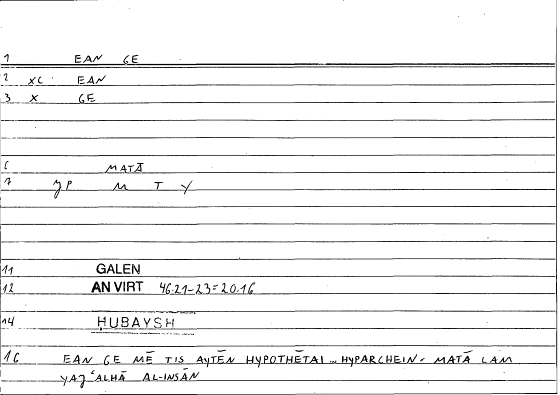 1 EAN GE
2 XC EAN
3 X GE
6 MATĀ
7 JP M T Y
11 GALEN
12 AN VIRT 46.21-23=20.16
14 ḤUBAYSH
16 EAN GE MĒ TIS AYTĒN HYPOTHĒTAI … HYPARCHEIN - MATĀ LAM
YAJʿALHĀ AL-INSĀN